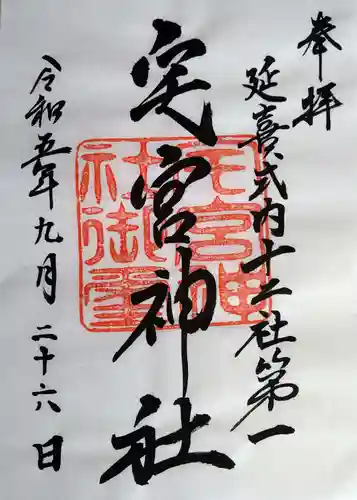 奉拝
延喜式内十二社第一
宅宮神社
宅宮神
社御璽
令和五年九月二十六日